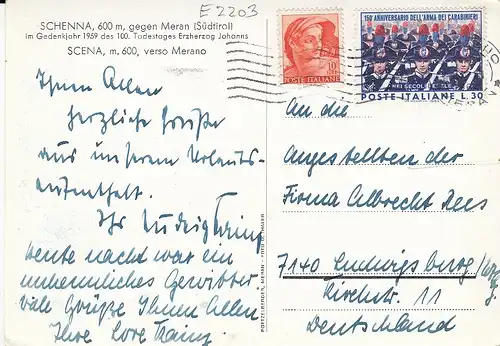 E 2203
SCHENNA, 600 m, gegen Meran (Südtirol)
im Gedenkjahr 1959 des 100. Todestages Erzherzog Johanns
SCENA, m. 600, verso Merano
Ihnen Allen
herzliche Grüße
aus unserem Urlaubs-
aufenthalt.
Ihr Ludwig
heute nacht war ein
unheimliches Gewitter
viele Grüße Ihnen Allen
Ihre Lore
10
POSTE ITALIANE
150° ANNIVERSARIO DELL'ARMA DEI CARABINIERI
NEI SECOLI FEDELE
POSTE ITALIANE L. 30
An die
Angestellten der
Firma Albrecht
7140 Ludwigsburg/Wttbg.
Kirchstr. 11
Deutschland